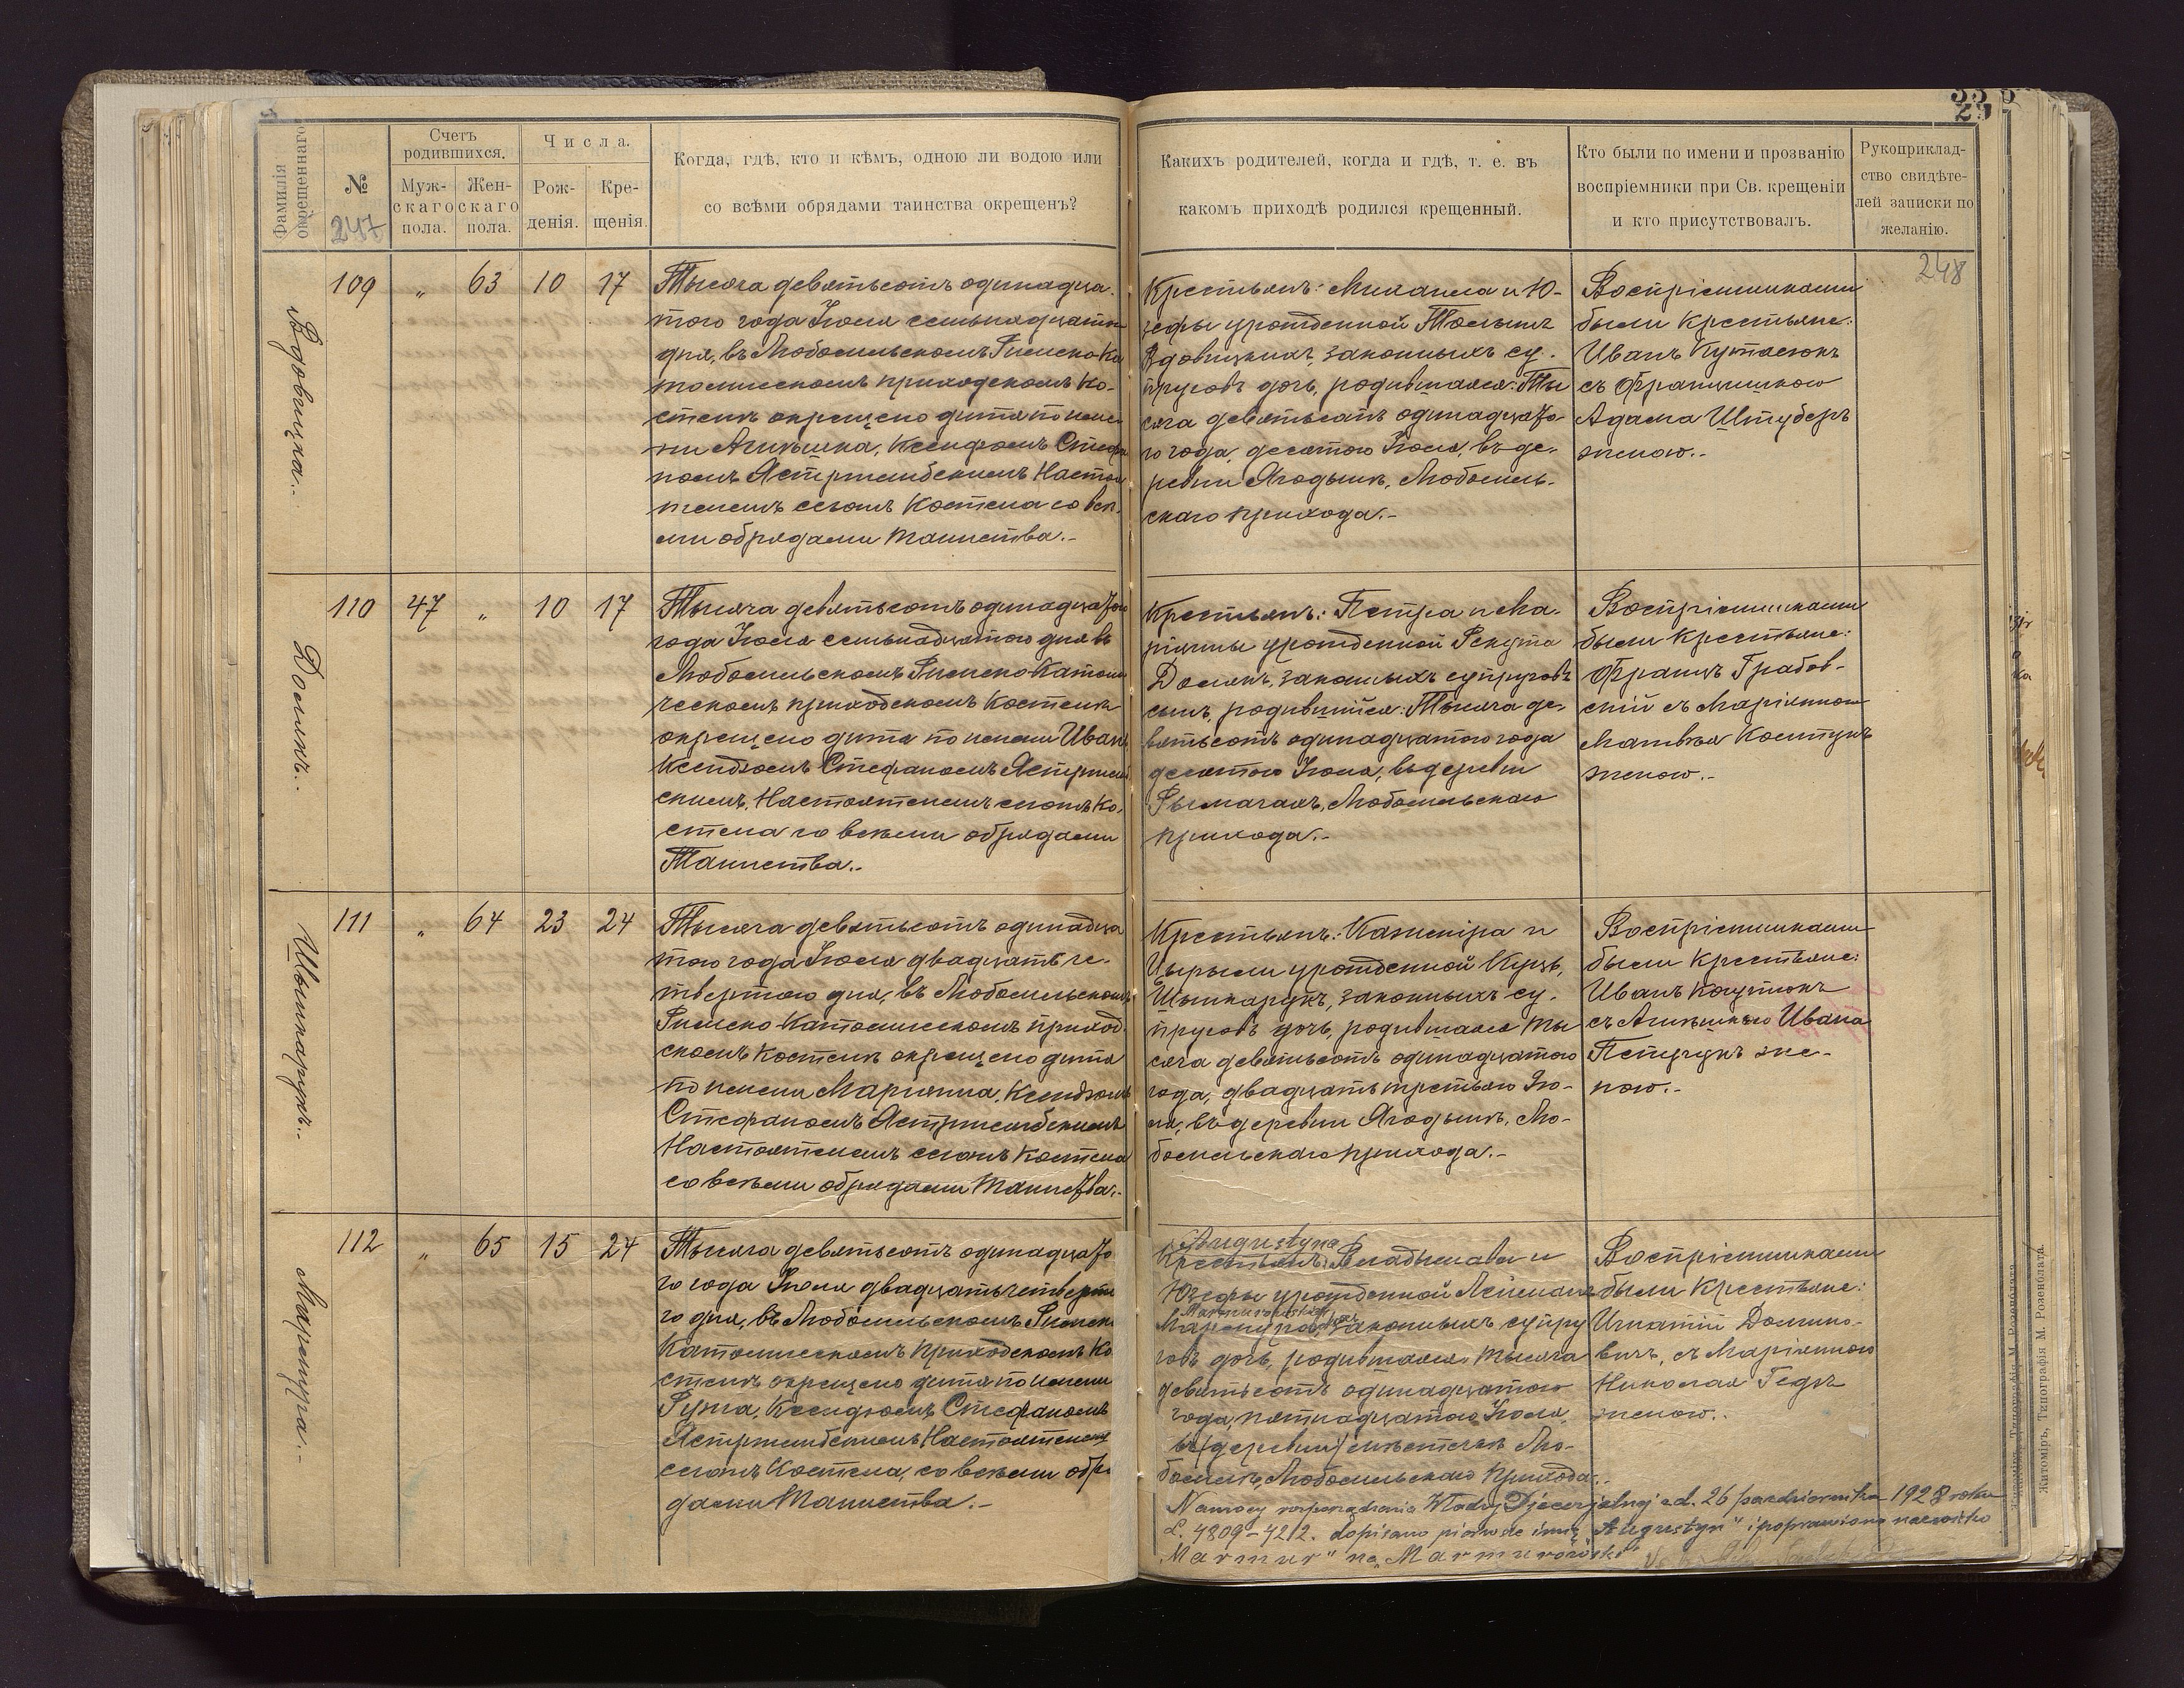 Фамилія окрещеннаго
№
247
Счетъ родившихся.
Муж-
скаго
пола.
Жен-
скаго
пола.
Числа.
Рож-
денія.
Кре-
щенія.
Когда, гдѣ, кто и кѣмъ, одною ли водою или
со всѣми обрядами таинства окрещенъ?
Какихъ родителей, когда и гдѣ, т. е. въ
какомъ приходѣ родился крещенный.
Кто были по имени и прозванію
воспріемники при Св. крещеніи
и кто присутствовалъ.
Рукоприклад-
ство свидѣте-
лей записки по
желанію.
248
Вдовицка.
109 „ 63 10 17
Тысяча девятьсотъ одинадца-
того года Іюля семьнадцатаго
дня, въ Любомльскомъ Римско-Ка
толическомъ приходскомъ Ко-
стелѣ окрещено дитя по име-
ни Агнѣшка, Ксендзомъ Стефа
номъ Ястржембскимъ Настоя
телемъ сегожъ Костела со всѣ-
ми обрядами таинства.-
Крестьянъ: Михаила и Ю-
зефы урожденной
Вдовицкихъ, законныхъ су-
пруговъ дочь, родившаяся: Ты
сяча девятьсотъ одинадцато-
го года, десятого Іюля, въ де-
ревни Ягодынѣ, Любомль-
скаго прихода.-
Воспріемниками
были Крестьяне:
Иванъ Кутасюкъ
съ Францишкою
Адама Штуберъ
женою.-
Домикъ.
110 47 „ 10 17
Тысяча девятьсотъ одинадцатого
года Іюля семьнадцатого дня въ
Любомльскомъ Римско-Католи
ческомъ приходскомъ Костелѣ
окрещено дитя по имени Иванъ
Ксендзомъ Стефаномъ Ястржемб
скимъ, Настоятелемъ сегожъ Ко-
стела со всѣми обрядами
Таинства.-
Крестьянъ: Петра и Ма-
ріянны урожденной Рекута
законныхъ супруговъ
сынъ, родившійся: Тысяча де-
вятьсотъ одинадцатого года
десятого Іюля, въ деревни
Рымачахъ, Любомльскаго
прихода.-
Воспріемниками
были Крестьяне:
Францъ Грабов-
скій съ Маріянною
Матвѣя Костукъ
женою.-
Шинкарукъ.-
111 „ 64 23 24
Тысяча девятьсотъ одинадца
того года Іюля двадцать че-
твертого дня, въ Любомльскомъ
Римско-Католическомъ приход
скомъ Костелѣ окрещено дитя
по имени Маріянна, Ксендзомъ
Стефаномъ Ястржембскимъ
Настоятелемъ сегожъ Костела
со всѣми обрядами Таинства.-
Крестьянъ: Казиміра и
урожденной Куць,
Шинкарукъ, законныхъ су-
пруговъ дочь, родившаяся Ты
сяча девятьсотъ одинадцатого
года, двадцать третьяго Ію-
ля, въ деревни Ягодынѣ, Лю-
бомльскаго прихода.-
Воспріемниками
были Крестьяне:
Иванъ
съ Агнѣшкою Ивана
Петрукъ же-
ною.-
Мармура.-
112 „ 65 15 24
Тысяча девятьсотъ одинадцато
го года Іюля двадцать четверто
го дня, въ Любомльскомъ Римско
Католическомъ приходскомъ Ко
стелѣ окрещено дитя по имени
Ружа, Ксендзомъ Стефаномъ
Ястржембскимъ Настоятелемъ
сегожъ Костела, со всѣми обря
дами Таинства.-
Augustyna
Крестьянъ: Владыслава и
Юзефы урожденной
законныхъ супру
говъ дочь, родившаяся Тысяча
девятьсотъ одинадцатого
года, пятнадцатого Іюля,
въ (деревни) мѣстечкѣ Лю-
бомлѣ, Любомльскаго прихода.
Воспріемниками
были Крестьяне:
Игнатій Домино-
вичъ, съ Маріянною
Николая Гедзъ
женою.-
Na mocy rozporządzenia Władzy Djecezjalnej z d. 26 października 1928 roku
L. 4809-4212. dopisano pierwsze imię „Augustyn" i poprawiono nazwisko
„Marmur" na „Marmurowski"
Житоміръ, Типографія М. Розенблата.
Житоміръ, Типографія М. Розенблата.